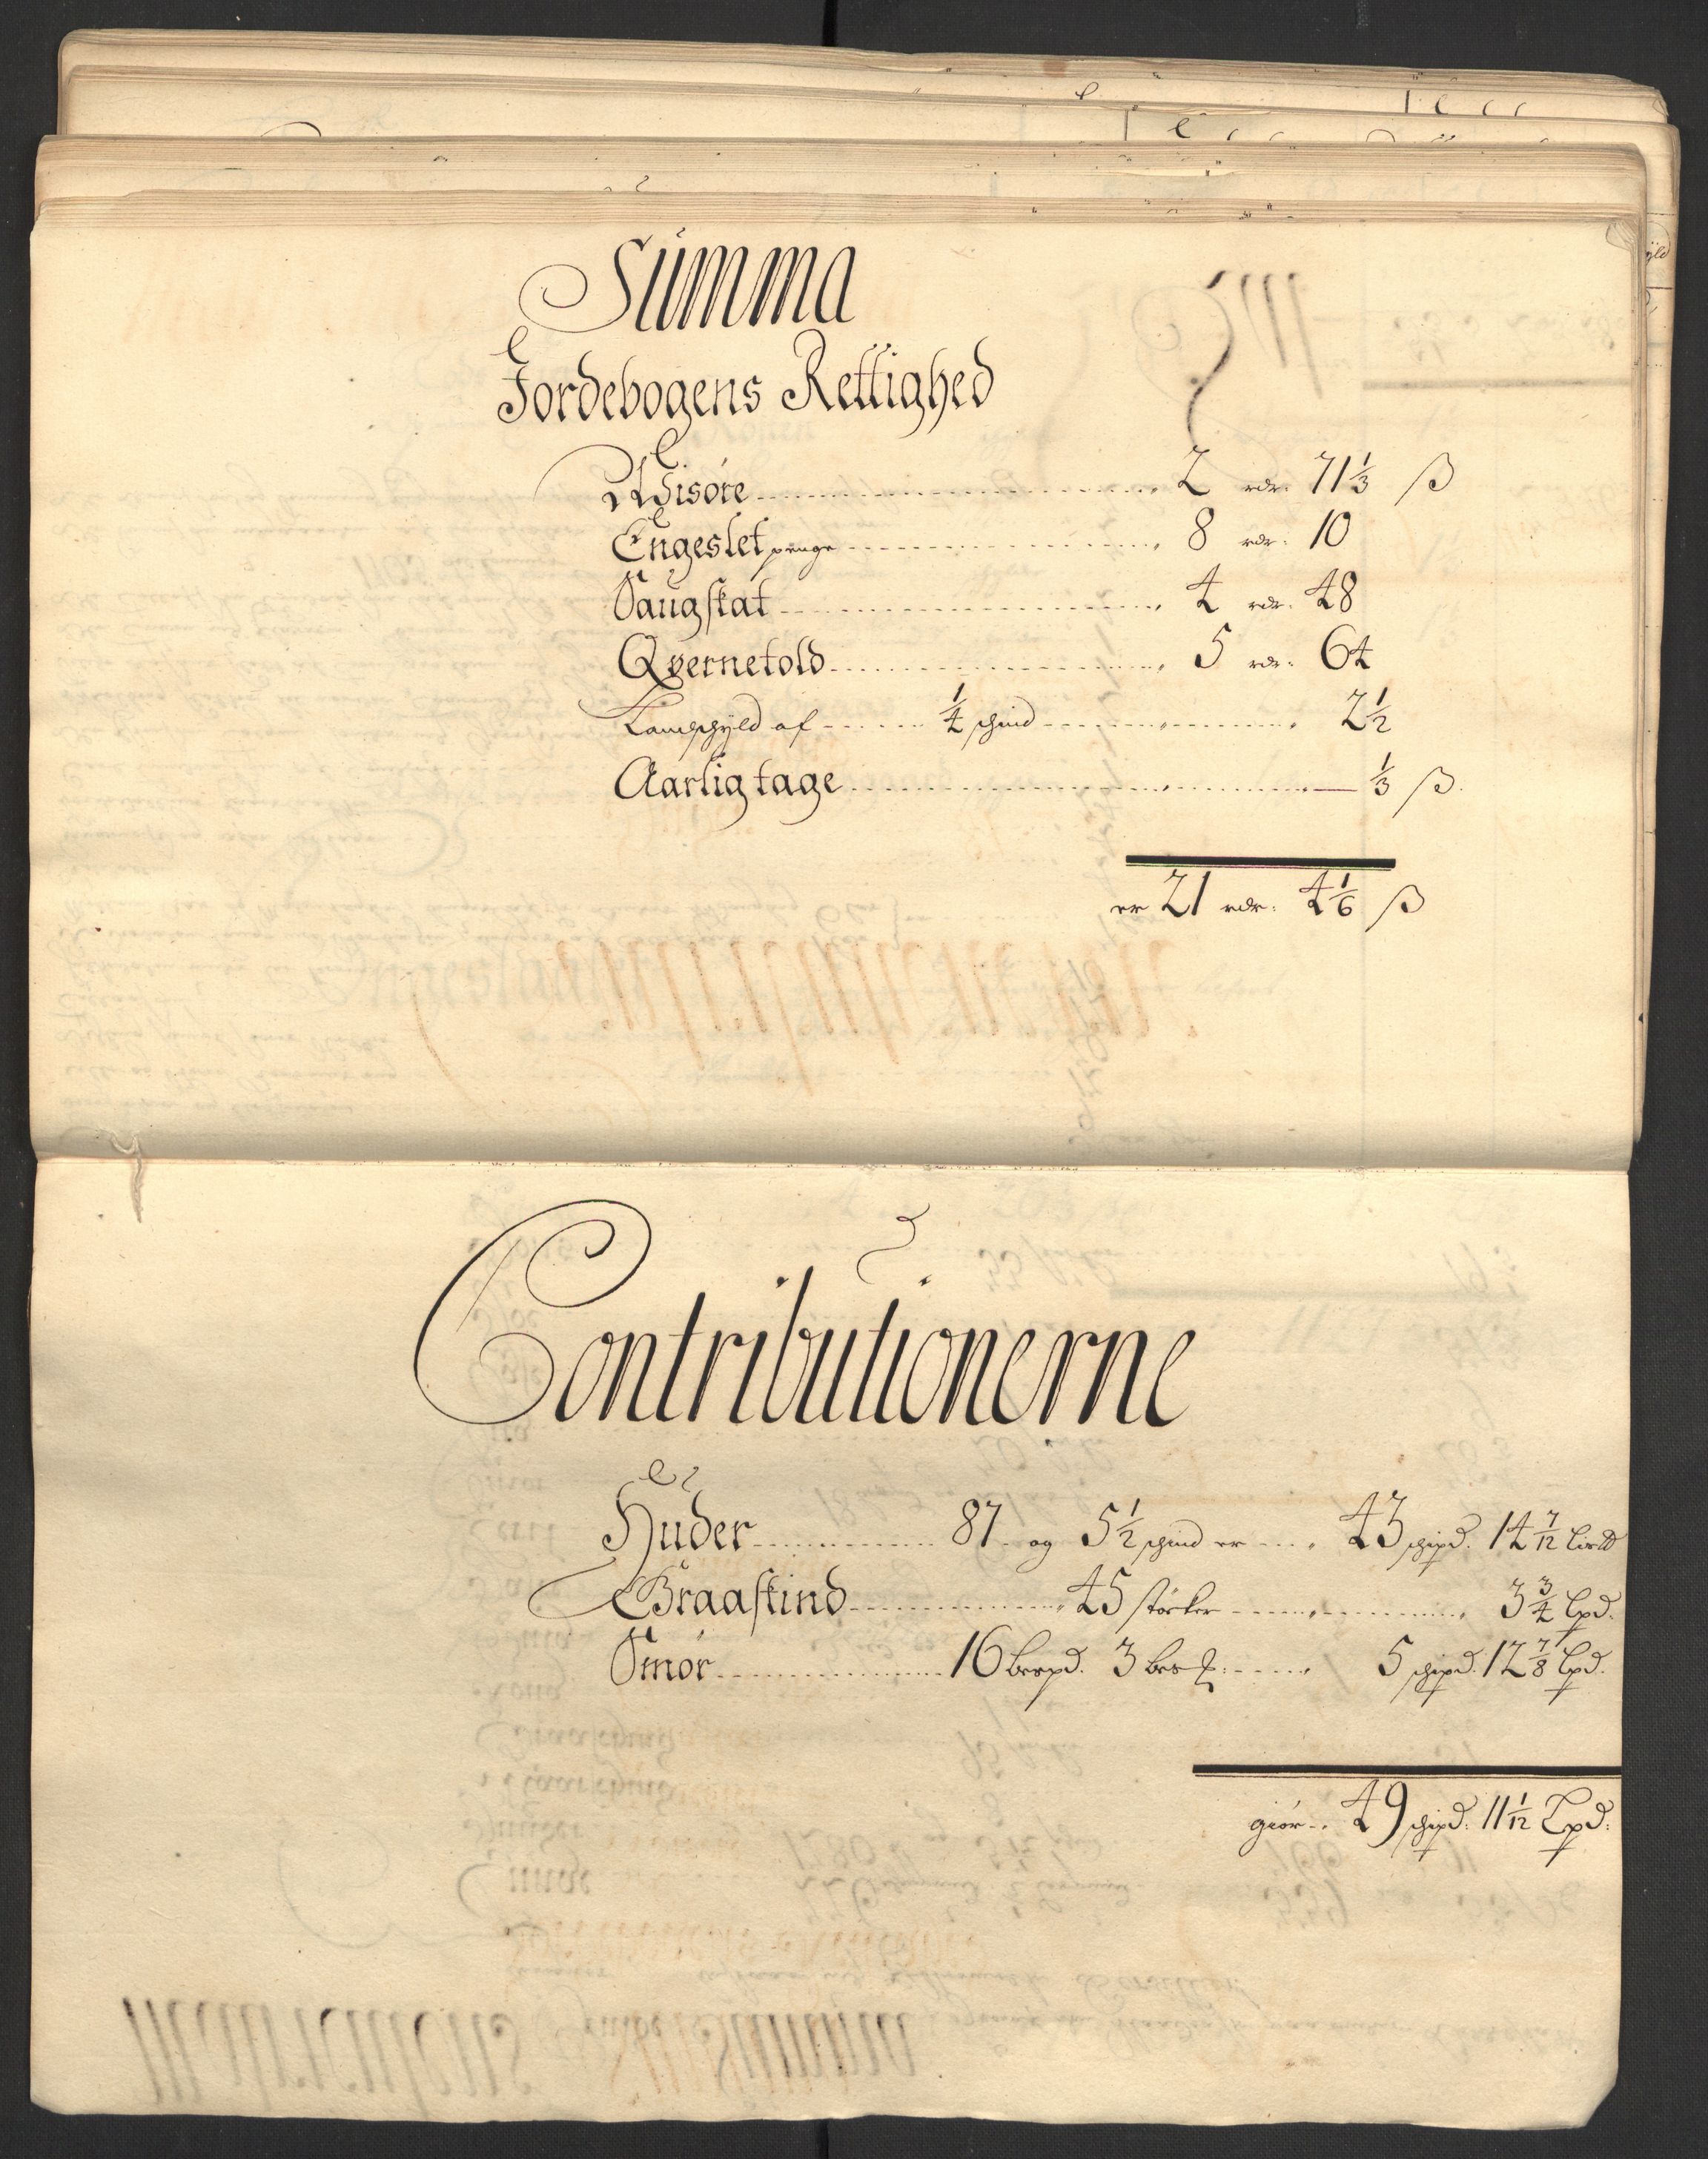 Summa
Jordebogens Rettighed
Wisöre 2 rdr: 71 1/3 ß
Engeslet penge 8 rdr: 10
Saugskat 4 rdr: 48
Qvernetold 5 rdr: 64
Landschyld af 1/4 schind 2 1/2
Aarlig tage 1/3 ß.
er 21 rdr: 4 1/6 ß
Contributionerne
Huder 87 og 5 1/2 schind er 43 schipd: 14 7/12 Lis℔
Graaskind 45 störker 3 3/4 Lpd.
Smör 16 berpd. 3 5 schipd: 12 7/8 Lpd.
giör 49 schipd: 11 1/12 Lpd: